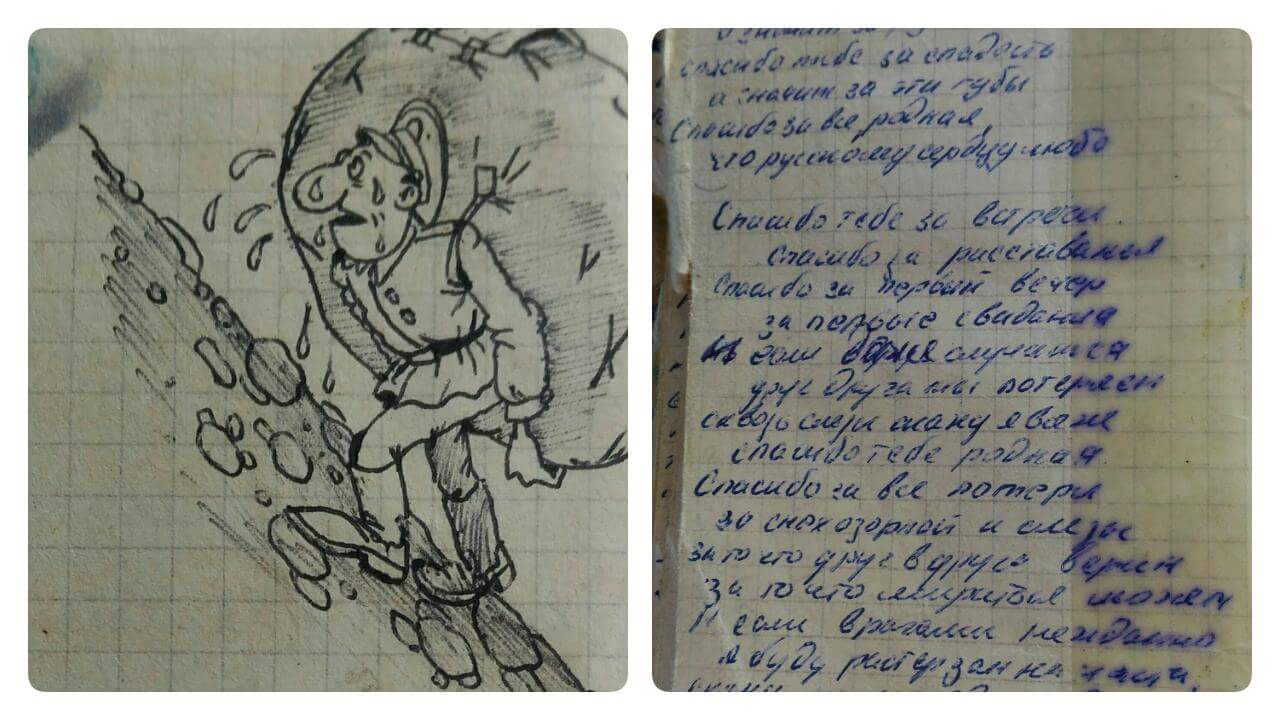 спасибо тебе за сладость
а значит за эти губы
Спасибо за все родная
что русскому сердцу любо
Спасибо тебе за встречи
спасибо за расставанья
Спасибо за первый вечер
за первые свидания
если случится
друг друга мы потеряем
сквозь слезы скажу я
спасибо тебе родная
Спасибо за все потери
за смех озорной и слезы
за то что друг в друга верим
за то что мириться можем
И если врагами нежданно
я буду растерзан на части,